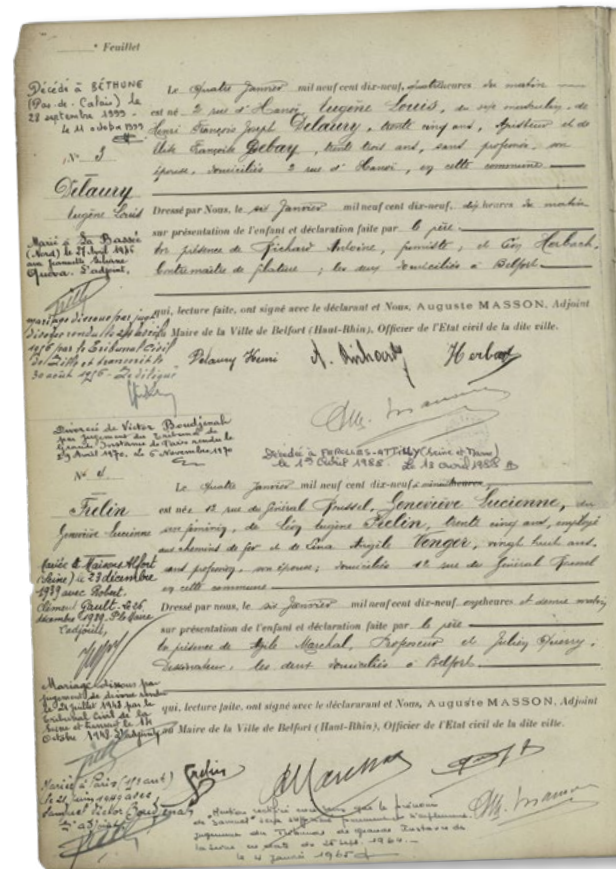 Feuillet
Décédé à BÉTHUNE
(Pas-de-Calais) le
28 septembre 1999
le 11 octobre 1999
N° 3
Delaury
Eugène Louis
Marié à La Bassée
(Nord) le
l'adjoint,
mariage dissous par
divorce rendu le
1976 par le Tribunal civil
de Lille et transmis le
30 août 1976
Le quatre Janvier mil neuf cent dix-neuf, quatre heures du matin
est né 2 rue d'Hanoï, Eugène Louis, du sexe masculin, de
Henri François Joseph Delaury, trente cinq ans, et de
Françoise Gebay, trente trois ans, sans profession, son
épouse, domiciliés 2 rue d'Hanoï, en cette commune
Dressé par Nous, le six Janvier mil neuf cent dix-neuf, dix heures du matin
sur présentation de l'enfant et déclaration faite par le père
en présence de Richard Antoine, et Herbach,
Contremaître de filature, les deux domiciliés à Belfort
qui, lecture faite, ont signé avec le déclarant et Nous, Auguste MASSON, Adjoint
au Maire de la Ville de Belfort (Haut-Rhin), Officier de l'Etat civil de la dite ville.
Delaury Henri
Divorcée de Victor Boudjenah
par jugement du Tribunal de
Grande Instance de Paris rendu le
29 Avril 1970. le 6 Novembre 1970
Décédée à FEROLLES-ATTILLY (Seine et Marne)
le 1er avril 1988. Le 18 avril 1988
N° 4
Frelin
Geneviève Lucienne
Mariée à Maisons Alfort
(Seine) le 23 décembre
1939 avec Robert
Clément Gault. Le 26
décembre 1939. P. le Maire
l'adjoint,
Mariage dissous par
jugement de divorce rendu
le 21 juillet 1948 par le
tribunal civil de la
Seine et transcrit le 14
Octobre 1948. L'adjoint
Mariée à Paris
le 21 juin 1949 avec
Samuel Victor Boudjenah
L'adjoint
Le quatre Janvier mil neuf cent dix-neuf,
est née 12 rue du Général Roussel, Geneviève Lucienne, du
sexe féminin, de Léon Eugène Frelin, trente cinq ans, employé
aux chemins de fer et de Angèle Venger, vingt huit ans,
sans profession, son épouse, domiciliés 12 rue du Général Roussel
en cette commune
Dressé par nous, le six Janvier mil neuf cent dix-neuf, onze heures et demie matin
sur présentation de l'enfant et déclaration faite par le père
en présence de Marchal, Professeur et Julien
Dessinateur, les deux domiciliés à Belfort
qui, lecture faite, ont signé avec le déclararant et Nous, Auguste MASSON, Adjoint
au Maire de la Ville de Belfort (Haut-Rhin), Officier de l'Etat civil de la dite ville.
Frelin
Mention rectifiée en ce sens que le prénom
de "Samuel" sera supprimé
jugement du Tribunal de Grande Instance de
la Seine en date du 25 sept. 1964.
le 4 janvier 1965